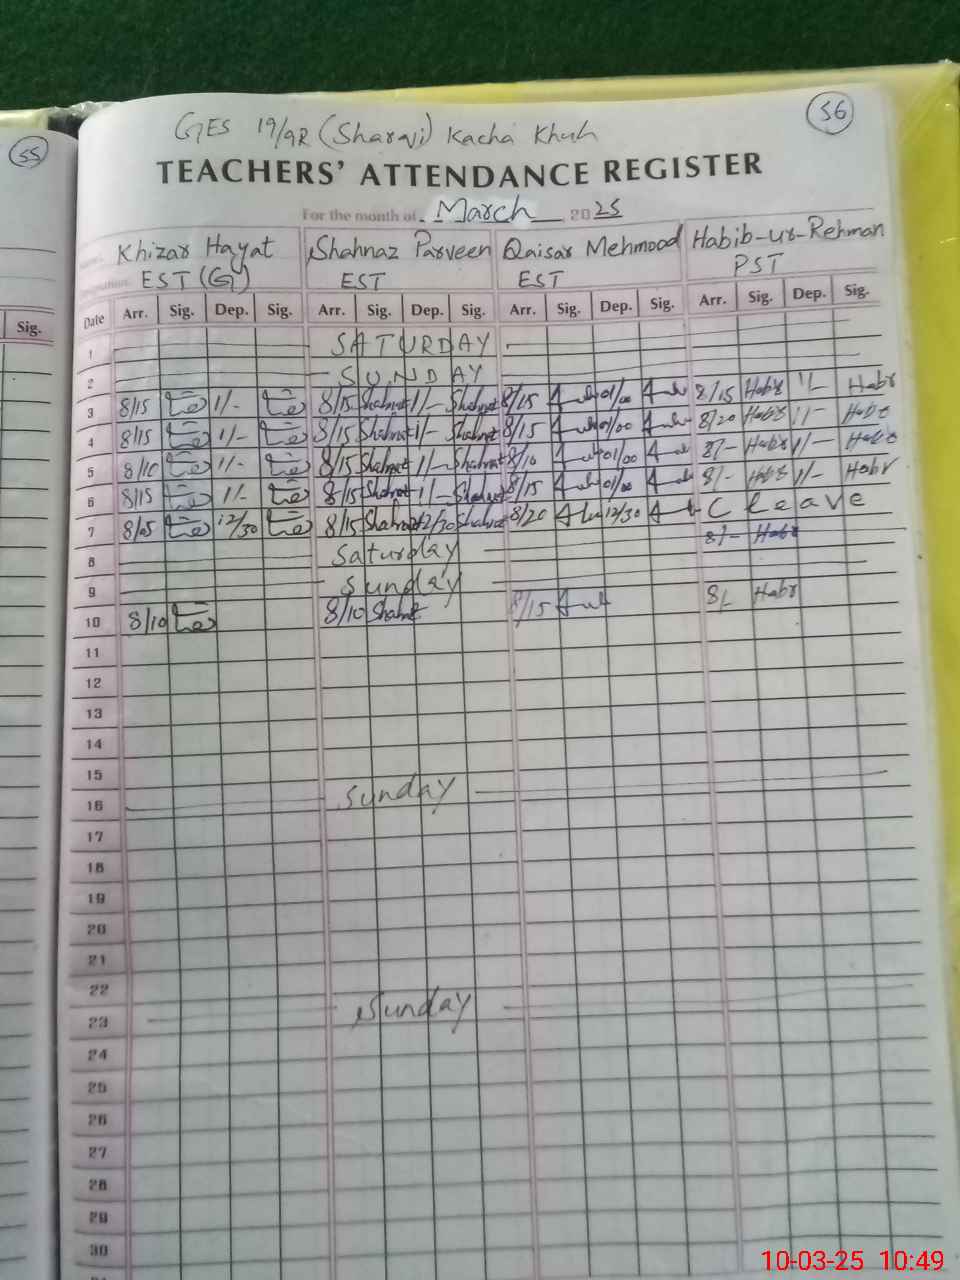 55
56
GES 19/9R (Sharqi) Kacha Khuh
TEACHERS' ATTENDANCE REGISTER
For the month of March 2025
Khizar Hayat Shahnaz Parveen Qaisar Mehmood Habib-ur-Rehman
EST (G) EST EST PST
Sig. Date Arr. Sig. Dep. Sig. Arr. Sig. Dep. Sig. Arr. Sig. Dep. Sig. Arr. Sig. Dep. Sig.
1 SATURDAY
2 SUNDAY
3 8/15 1/- 8/15 Shahnaz 1/- Shahnaz 8/15 01/00 8/15 Habib 1/- Habib
4 8/15 1/- 8/15 Shahnaz 1/- Shahnaz 8/15 01/00 8/20 Habib 1/- Habib
5 8/10 1/- 8/15 Shahnaz 1/- Shahnaz 8/10 01/00 8/- Habib 1/- Habib
6 8/15 1/- 8/15 Shahnaz 1/- Shahnaz 8/15 01/00 8/- Habib 1/- Habib
7 8/05 12/30 8/15 Shahnaz 12/30 Shahnaz 8/20 12/30 C leave
8/- Habib
8 Saturday
9 Sunday
10 8/10 8/10 Shahnaz 8/15 8/- Habib
11
12
13
14
15
16 Sunday
17
18
19
20
21
22
23 Sunday
24
25
26
27
28
29
30
10-03-25 10:49